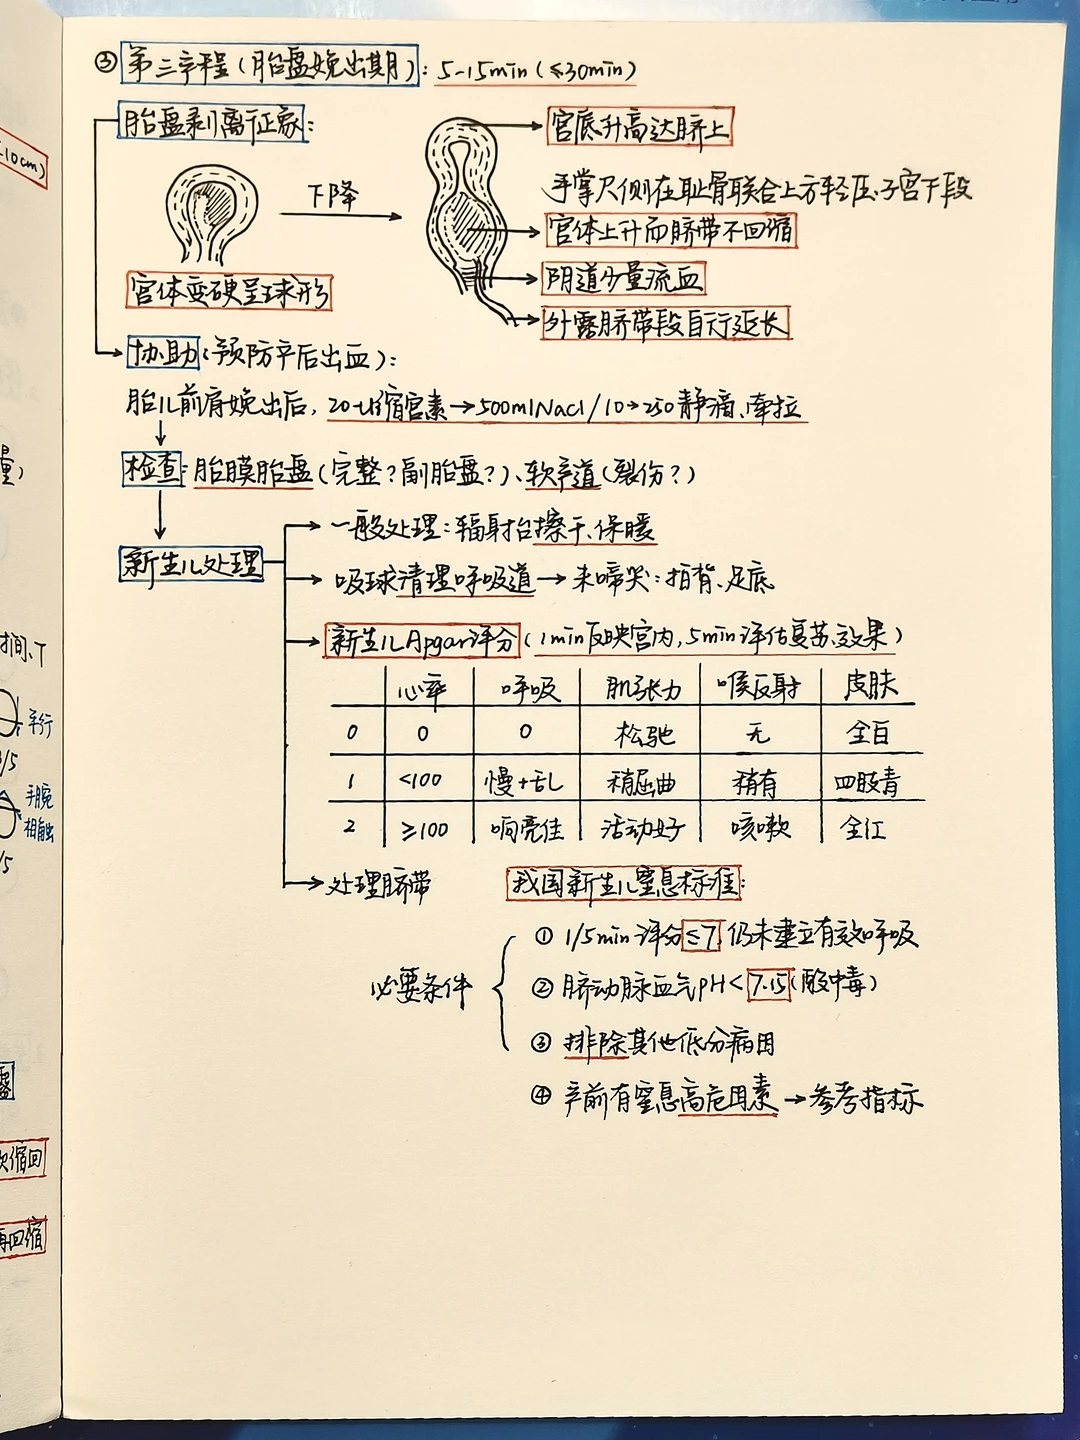 ③ 第三产程(胎盘娩出期): 5-15min(≤30min)
胎盘剥离征象:
宫底升高达脐上
下降
手掌尺侧在耻骨联合上方轻压子宫下段
宫体上升而脐带不回缩
阴道少量流血
宫体变硬呈球形
外露脐带段自行延长
协助(预防产后出血):
胎儿前肩娩出后, 20-U缩宫素→500mlNacl/10→250静滴、牵拉
检查: 胎膜胎盘(完整?副胎盘?)、软产道(裂伤?)
新生儿处理
一般处理: 辐射台擦干、保暖
吸球清理呼吸道→未啼哭: 拍背、足底
新生儿Apgar评分(1min反映宫内, 5min评估复苏效果)
心率 呼吸 肌张力 喉反射 皮肤
0 0 0 松驰 无 全白
1 <100 慢+乱 稍屈曲 稍有 四肢青
2 ≥100 响亮佳 活动好 咳嗽 全红
处理脐带
我国新生儿窒息标准:
必要条件
① 1/5min评分≤7, 仍未建立有效呼吸
② 脐动脉血气pH<7.15(酸中毒)
③ 排除其他低分病因
④ 产前有窒息高危因素→参考指标
≤10cm)
量)
时间、T
平行
3/5
手腕
相触
/5
露
次缩回
再回缩